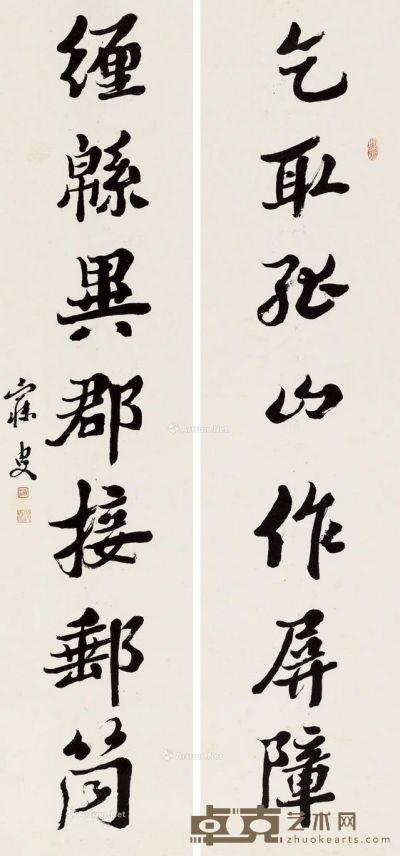 乞取孤山作屏障
纏緜異郡接郵筒
寐叟
Artron.Net
Artron.Net
Artron.Net
Artron.Net
卓克艺术网
zhuokearts.com